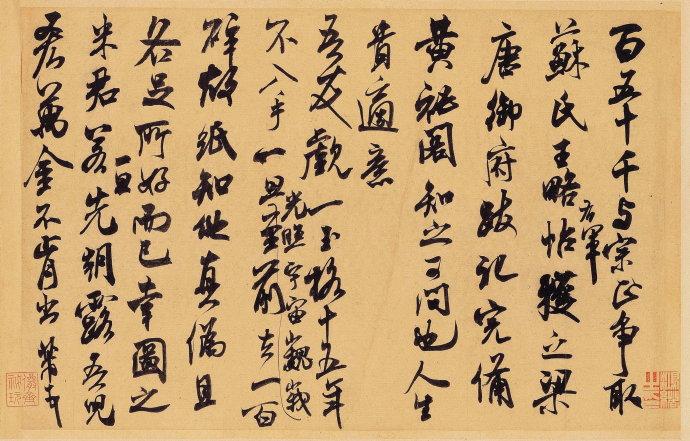 百五十千与宗正爭取
蘇氏王略帖右軍獲之梁
唐御府跋記完備
黃祕閣知之可問也人生
貴適意
吾友覷一玉格十五年
不入手一旦光照宇宙巍峩至前去一百
碎故紙知他真偽且
各足所好而已幸圖之
米君若一旦先朝露吾兒
吝萬金不肯出芾